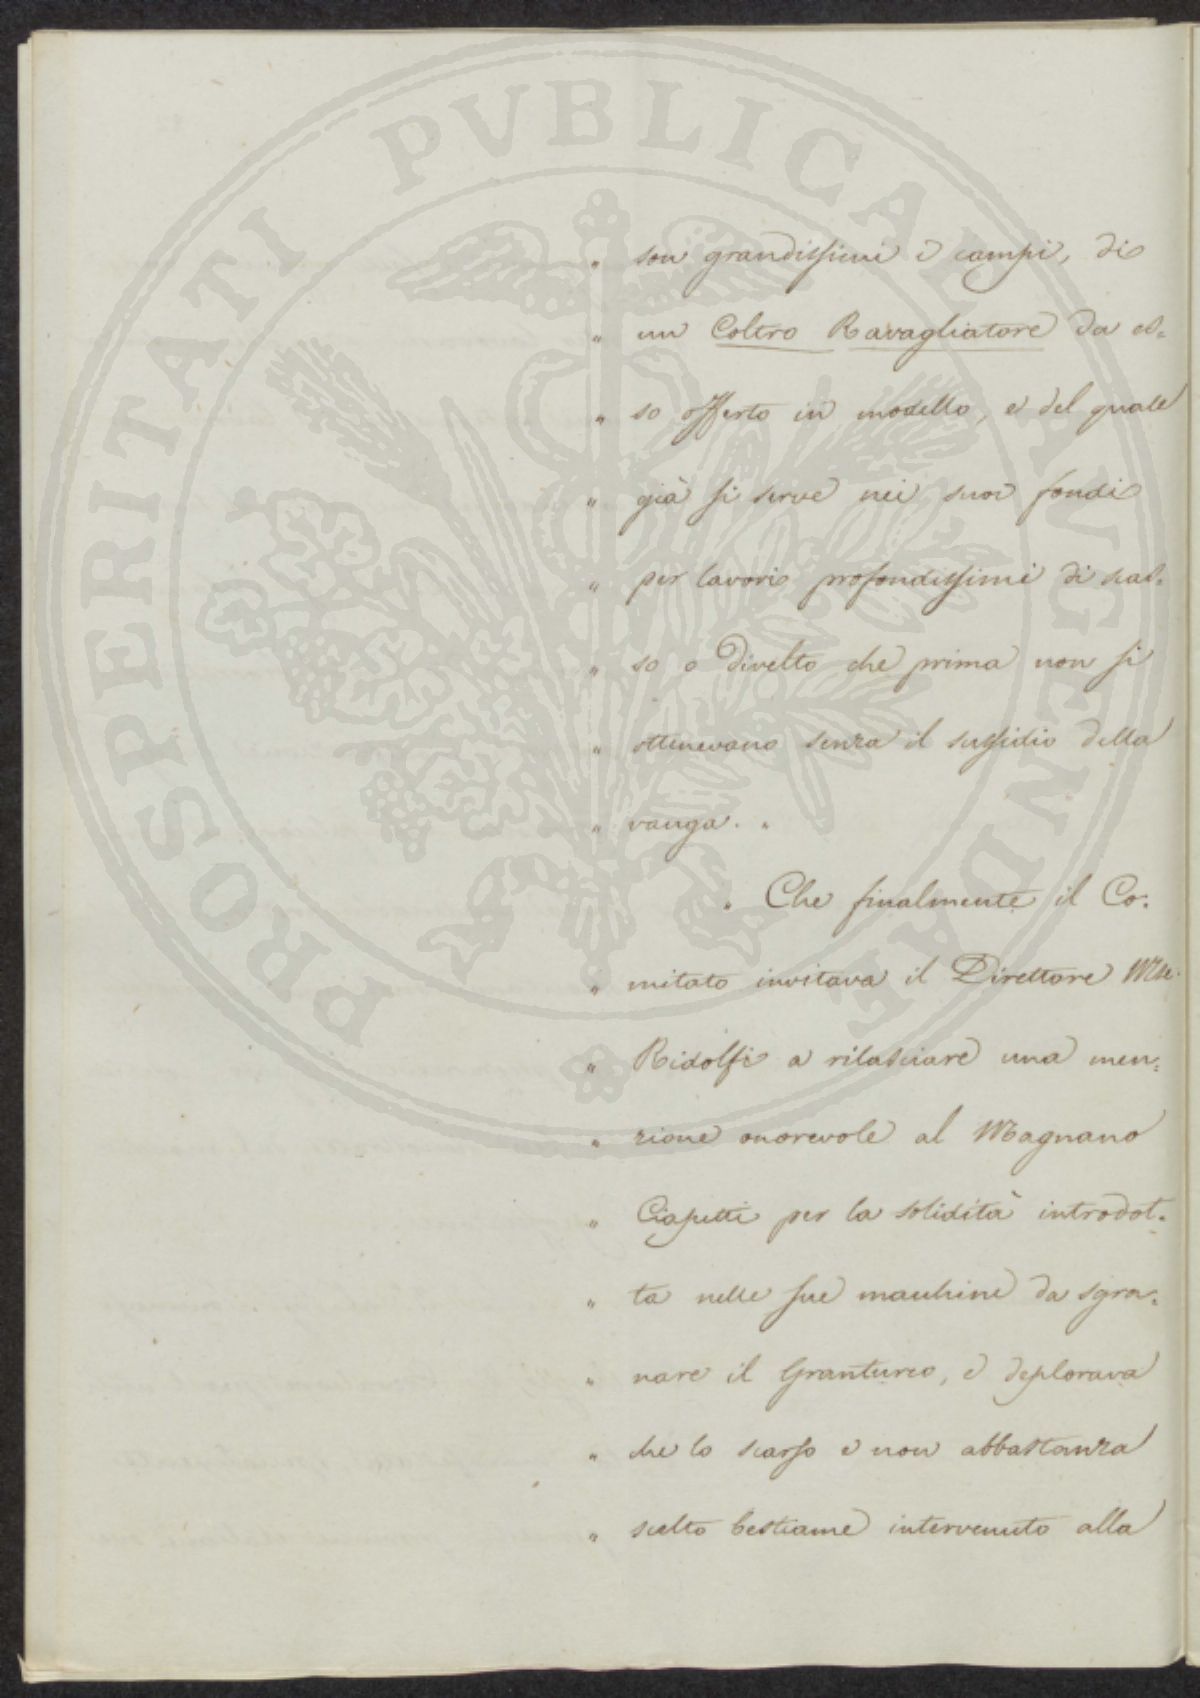 PROSPERITATI PVBLICAE AVGENDAE
" son grandissimi i campi, di
" un Coltro Ravagliatore da es=
" so offerto in modello, e del quale
" già si serve nei suoi fondi
" per lavori profondissimi di scas=
" so o divelto che prima non si
" ottenevano senza il sussidio della
" vanga. "
" Che finalmente il Co=
" mitato invitava il Direttore Mse.
" Ridolfi a rilasciare una men=
" zione onorevole al Magnano
" Ciapetti per la solidità introdot=
" ta nelle sue macchine da sgra=
" nare il Granturco, e deplorava
" che lo scarso e non abbastanza
" scelto bestiame intervenuto alla